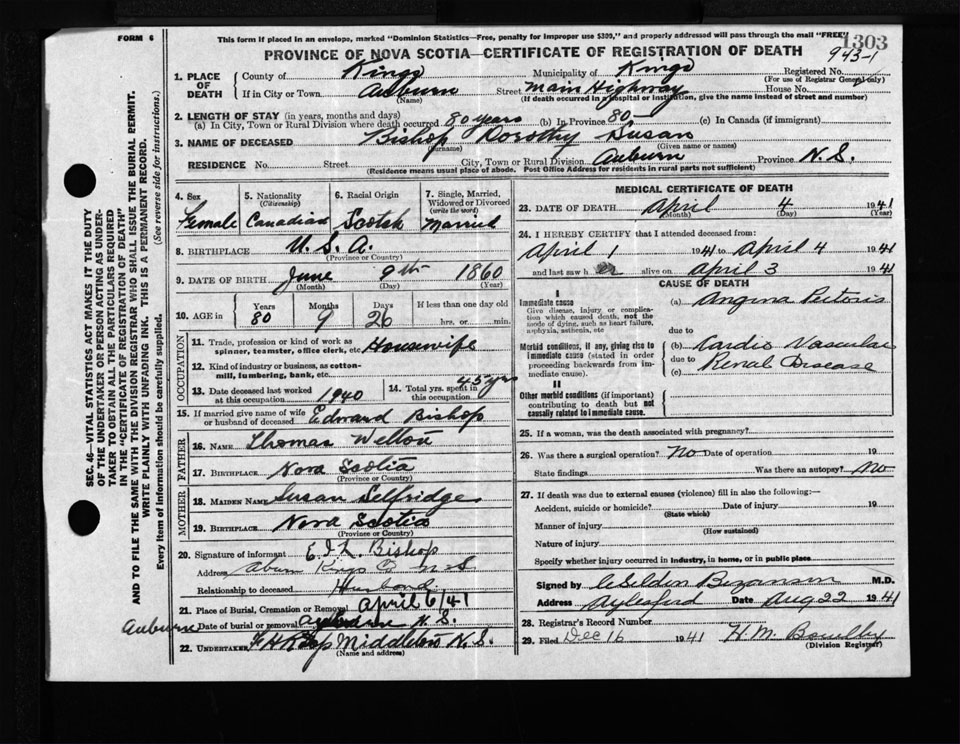 FORM 6
This form if placed in an envelope, marked "Dominion Statistics—Free, penalty for improper use $300," and properly addressed will pass through the mail "FREE"
1303
943-1
PROVINCE OF NOVA SCOTIA—CERTIFICATE OF REGISTRATION OF DEATH
1. PLACE OF DEATH
County of Kings Municipality of Kings Registered No.
(For use of Registrar General only)
If in City or Town Auburn Street Main Highway House No.
(Name) (If death occurred in a hospital or institution, give the name instead of street and number)
2. LENGTH OF STAY (in years, months and days)
(a) In City, Town or Rural Division where death occurred 80 years (b) In Province 80 (c) In Canada (if immigrant)
3. NAME OF DECEASED Bishop Dorothy Susan
(Surname) (Given name or names)
RESIDENCE No. Street City, Town or Rural Division Auburn Province N.S.
(Residence means usual place of abode. Post Office Address for residents in rural parts not sufficient)
4. Sex
Female
5. Nationality
(Citizenship)
Canadian
6. Racial Origin
Scotch
7. Single, Married, Widowed or Divorced
(write the word)
Married
8. BIRTHPLACE U.S.A.
(Province or Country)
9. DATE OF BIRTH June 9th 1860
(Month) (Day) (Year)
10. AGE in
Years Months Days If less than one day old
80 9 26 hrs. or min.
OCCUPATION
11. Trade, profession or kind of work as spinner, teamster, office clerk, etc. Housewife
12. Kind of industry or business, as cotton-mill, lumbering, bank, etc.
13. Date deceased last worked at this occupation 1940
14. Total yrs. spent in this occupation 45 yrs
15. If married give name of wife or husband of deceased Edward Bishop
FATHER
16. NAME Thomas Welton
17. BIRTHPLACE Nova Scotia
(Province or Country)
MOTHER
18. MAIDEN NAME Susan Selfridge
19. BIRTHPLACE Nova Scotia
(Province or Country)
20. Signature of informant E. Bishop
Address Kings Co N-S
Relationship to deceased Husband
21. Place of Burial, Cremation or Removal April 6/41
Auburn Date of burial or removal N.S.
22. UNDERTAKER Middleton N.S.
(Name and address)
MEDICAL CERTIFICATE OF DEATH
23. DATE OF DEATH April 4 1941
(Month) (Day) (Year)
24. I HEREBY CERTIFY that I attended deceased from:
April 1 1941 to April 4 1941
and last saw her alive on April 3 1941
CAUSE OF DEATH
I
Immediate cause
Give disease, injury, or complication which caused death, not the mode of dying, such as heart failure, asphyxia, asthenia, etc
(a) Angina Pectoris
due to
Morbid conditions, if any, giving rise to immediate cause (stated in order proceeding backwards from immediate cause).
(b) Cardio Vascular
due to
(c) Renal Disease
II
Other morbid conditions (if important) contributing to death but not causally related to immediate cause.
25. If a woman, was the death associated with pregnancy?
26. Was there a surgical operation? No Date of operation 19
State findings Was there an autopsy? No
27. If death was due to external causes (violence) fill in also the following:—
Accident, suicide or homicide? Date of injury 19
(State which)
Manner of injury
(How sustained)
Nature of injury
Specify whether injury occurred in industry, in home, or in public place
Signed by Selden Bezanson M.D.
Address Aylesford Date Aug 22 1941
28. Registrar's Record Number
29. Filed Dec 16 1941 H.M.
(Division Registrar)
SEC. 46—VITAL STATISTICS ACT MAKES IT THE DUTY
OF THE UNDERTAKER OR PERSON ACTING AS UNDER-
TAKER TO OBTAIN ALL THE PARTICULARS REQUIRED
IN THE "CERTIFICATE OF REGISTRATION OF DEATH"
AND TO FILE THE SAME WITH THE DIVISION REGISTRAR WHO SHALL ISSUE THE BURIAL PERMIT.
WRITE PLAINLY WITH UNFADING INK. THIS IS A PERMANENT RECORD.
Every item of information should be carefully supplied. (See reverse side for instructions.)